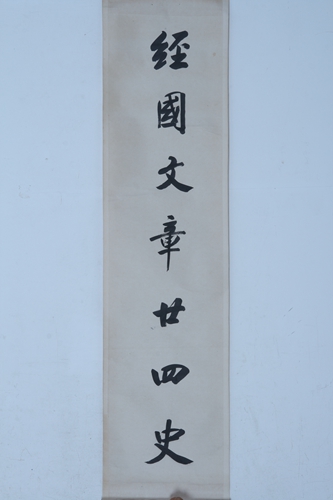 經國文章廿四史